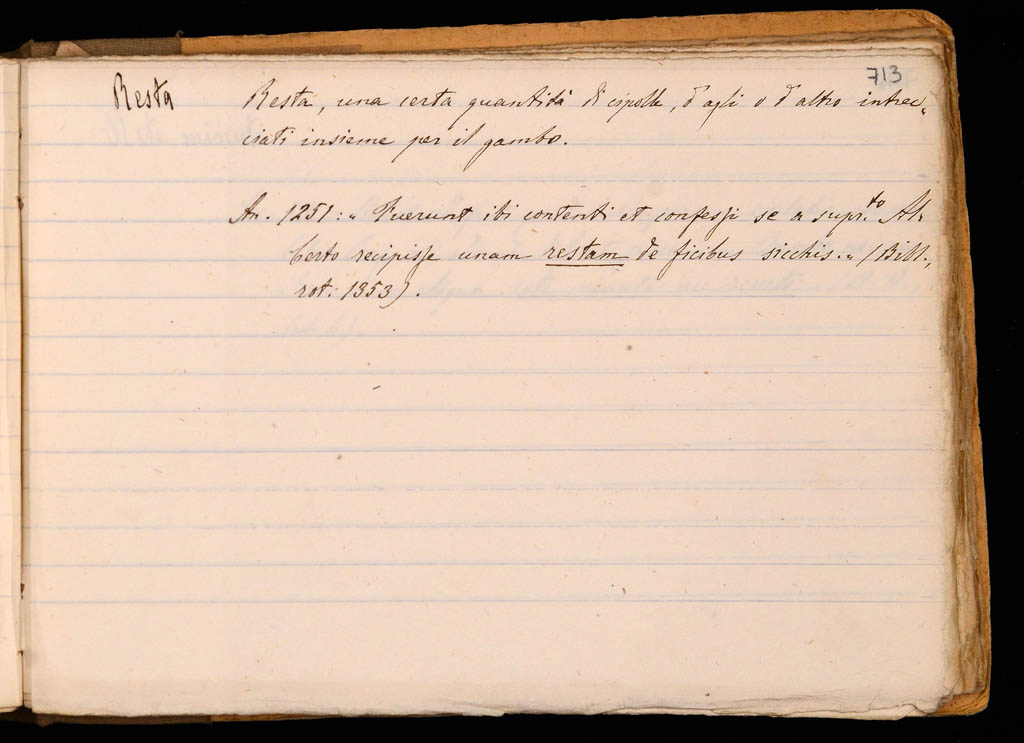 713
Resta
Resta, una certa quantità di cipolle, d'agli o d'altro intrec„
ciati insieme per il gambo.
An. 1251: „ Fuerunt ibi contenti et confessi se a supr.to Al„
berto recipisse unam restam de ficibus sicchis. „ (Bill.,
rot: 1353).